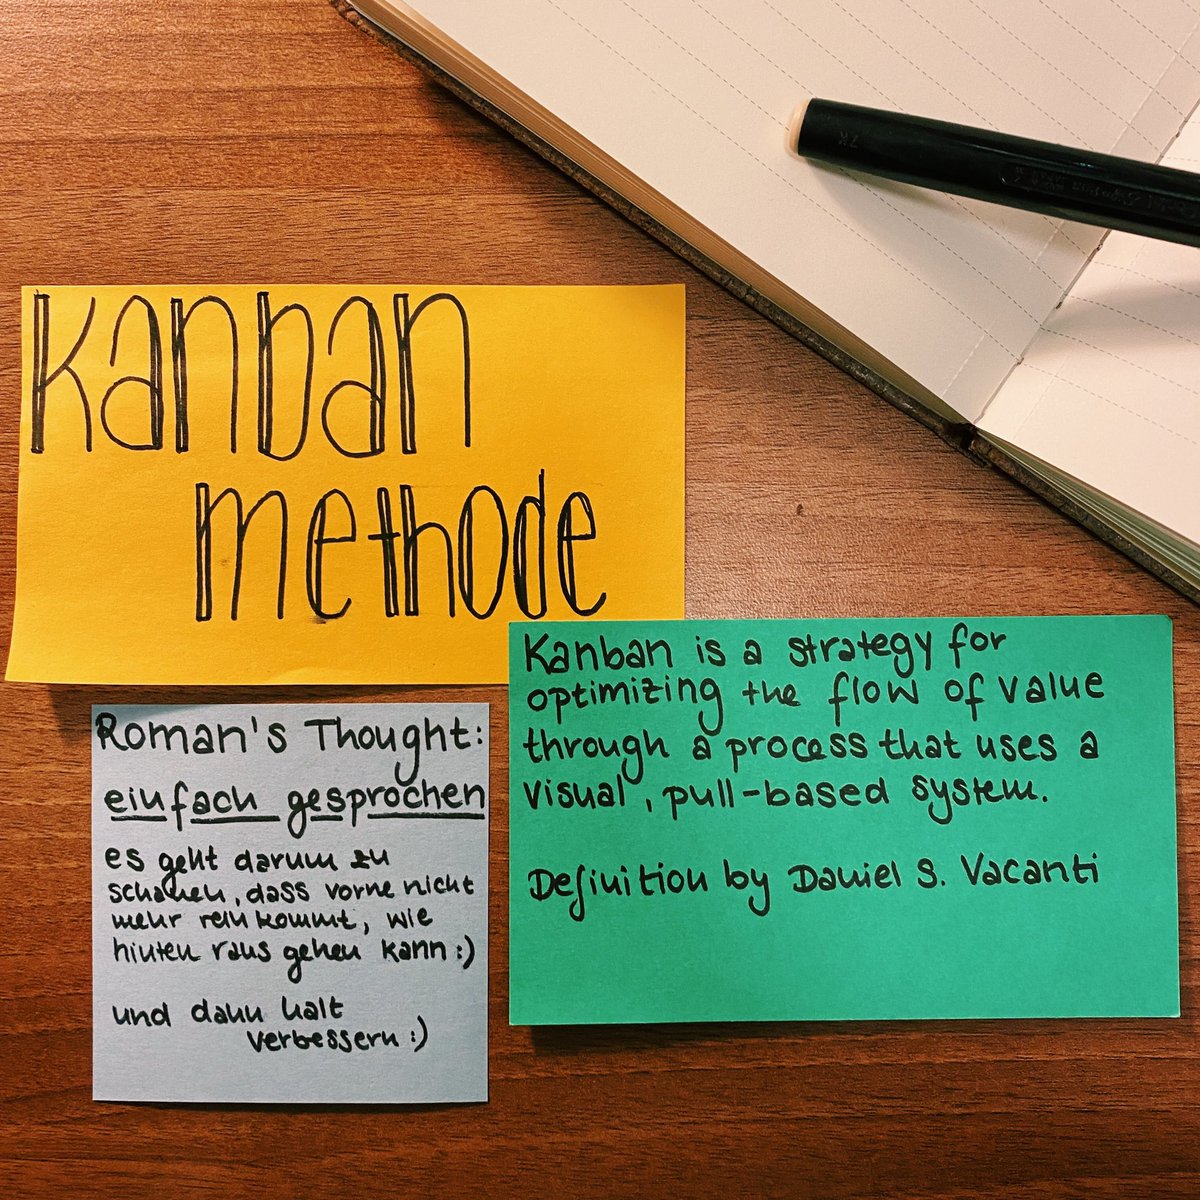 Kanban
methode
Kanban is a strategy for
optimizing the flow of value
through a process that uses a
visual, pull-based system.
Definition by Daniel S. Vacanti
Roman's Thought:
einfach gesprochen
es geht darum zu
schauen, dass vorne nicht
mehr rein kommt, wie
hinten raus gehen kann :)
und dann halt
verbessern :)